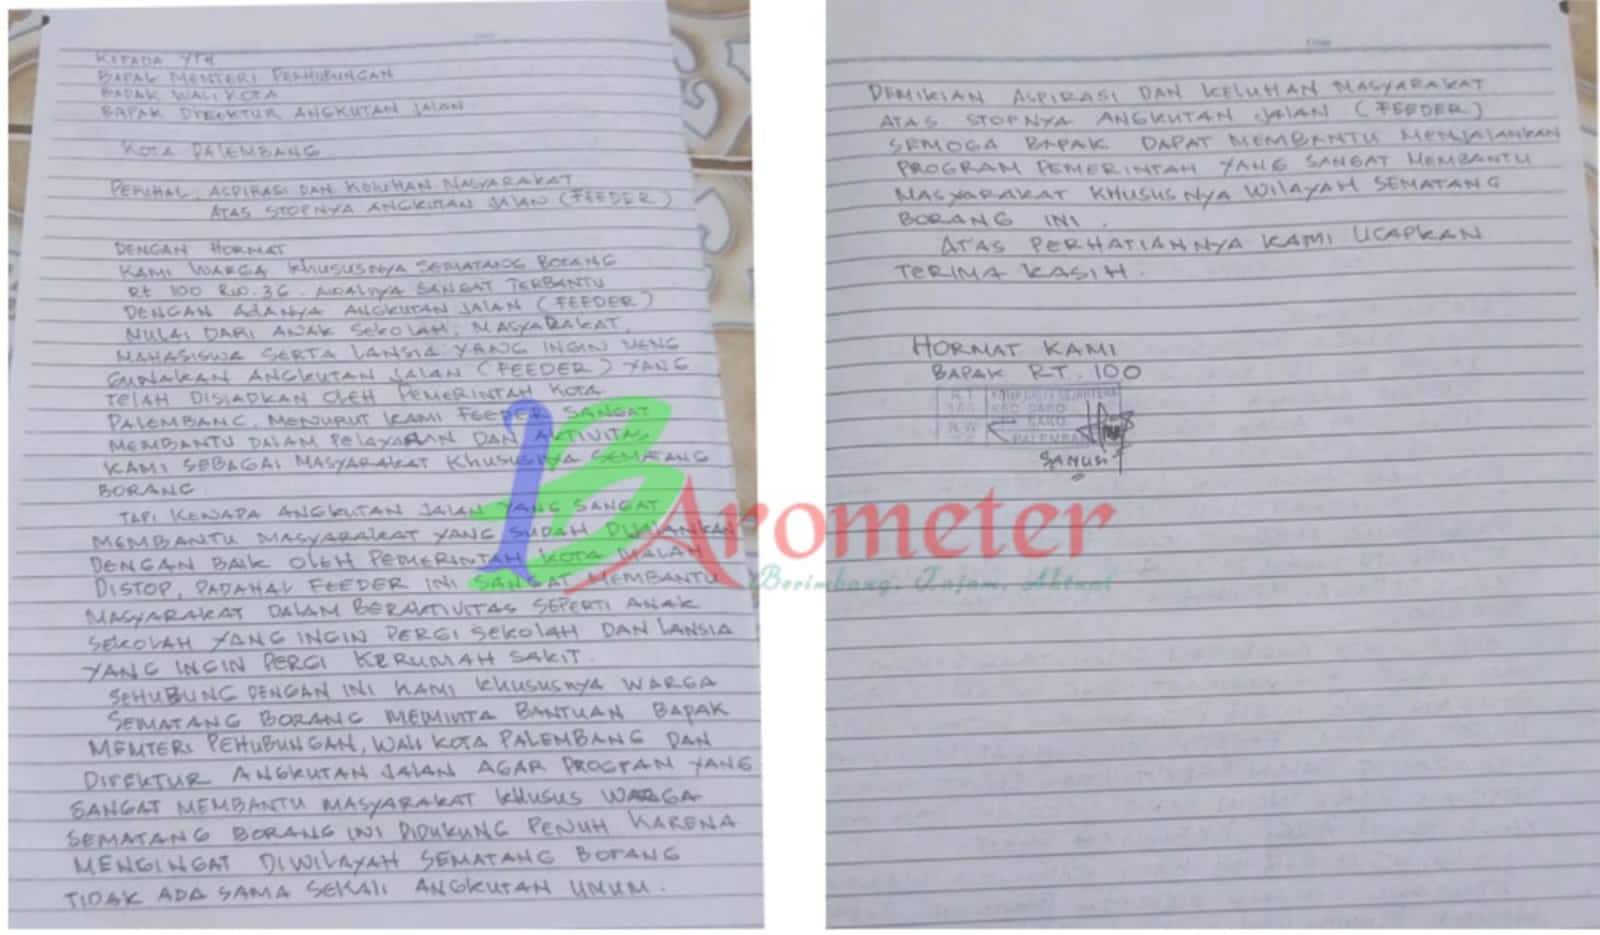 KEPADA YTH
BAPAK MENTERI PERHUBUNGAN
BAPAK WALI KOTA
BAPAK DIREKTUR ANGKUTAN JALAN
KOTA PALEMBANG
PERIHAL. ASPIRASI DAN KELUHAN MASYARAKAT
ATAS STOPNYA ANGKUTAN JALAN (FEEDER)
DENGAN HORMAT
KAMI WARGA KHUSUSNYA SEMATANG BORANG
Rt 100 RW.36. AWALNYA SANGAT TERBANTU
DENGAN ADANYA ANGKUTAN JALAN (FEEDER)
MULAI DARI ANAK SEKOLAH, MASYARAKAT,
MAHASISWA SERTA LANSIA YANG INGIN MENG
GUNAKAN ANGKUTAN JALAN (FEEDER) YANG
TELAH DISIAPKAN OLEH PEMERINTAH KOTA
PALEMBANG. MENURUT KAMI FEEDER SANGAT
MEMBANTU DALAM PELAYANAN DAN AKTIVITAS
KAMI SEBAGAI MASYARAKAT KHUSUSNYA SEMATANG
BORANG
TAPI KENAPA ANGKUTAN JALAN YANG SANGAT
MEMBANTU MASYARAKAT YANG SUDAH DIJALANKAN
DENGAN BAIK OLEH PEMERINTAH KOTA MALAH
DISTOP, PADAHAL FEEDER INI SANGAT MEMBANTU
MASYARAKAT DALAM BERAKTIVITAS SEPERTI ANAK
SEKOLAH YANG INGIN PERGI SEKOLAH DAN LANSIA
YANG INGIN PERGI KERUMAH SAKIT.
SEHUBUNG DENGAN INI KAMI KHUSUSNYA WARGA
SEMATANG BORANG MEMINTA BANTUAN BAPAK
MENTERI PEHUBUNGAN, WALI KOTA PALEMBANG DAN
DIREKTUR ANGKUTAN JALAN AGAR PROGRAM YANG
SANGAT MEMBANTU MASYARAKAT KHUSUS WARGA
SEMATANG BORANG INI DIDUKUNG PENUH KARENA
MENGINGAT DIWILAYAH SEMATANG BORANG
TIDAK ADA SAMA SEKALI ANGKUTAN UMUM.
DEMIKIAN ASPIRASI DAN KELUHAN MASYARAKAT
ATAS STOPNYA ANGKUTAN JALAN (FEEDER)
SEMOGA BAPAK DAPAT MEMBANTU MENJALANKAN
PROGRAM PEMERINTAH YANG SANGAT MEMBANTU
MASYARAKAT KHUSUSNYA WILAYAH SEMATANG
BORANG INI.
ATAS PERHATIANNYA KAMI UCAPKAN
TERIMA KASIH.
HORMAT KAMI
BAPAK RT. 100
R.T
100 KEC. SAKO
R.W SAKO
PALEMBANG
SANUSI
BArometer
Berimbang, Tajam, Aktual